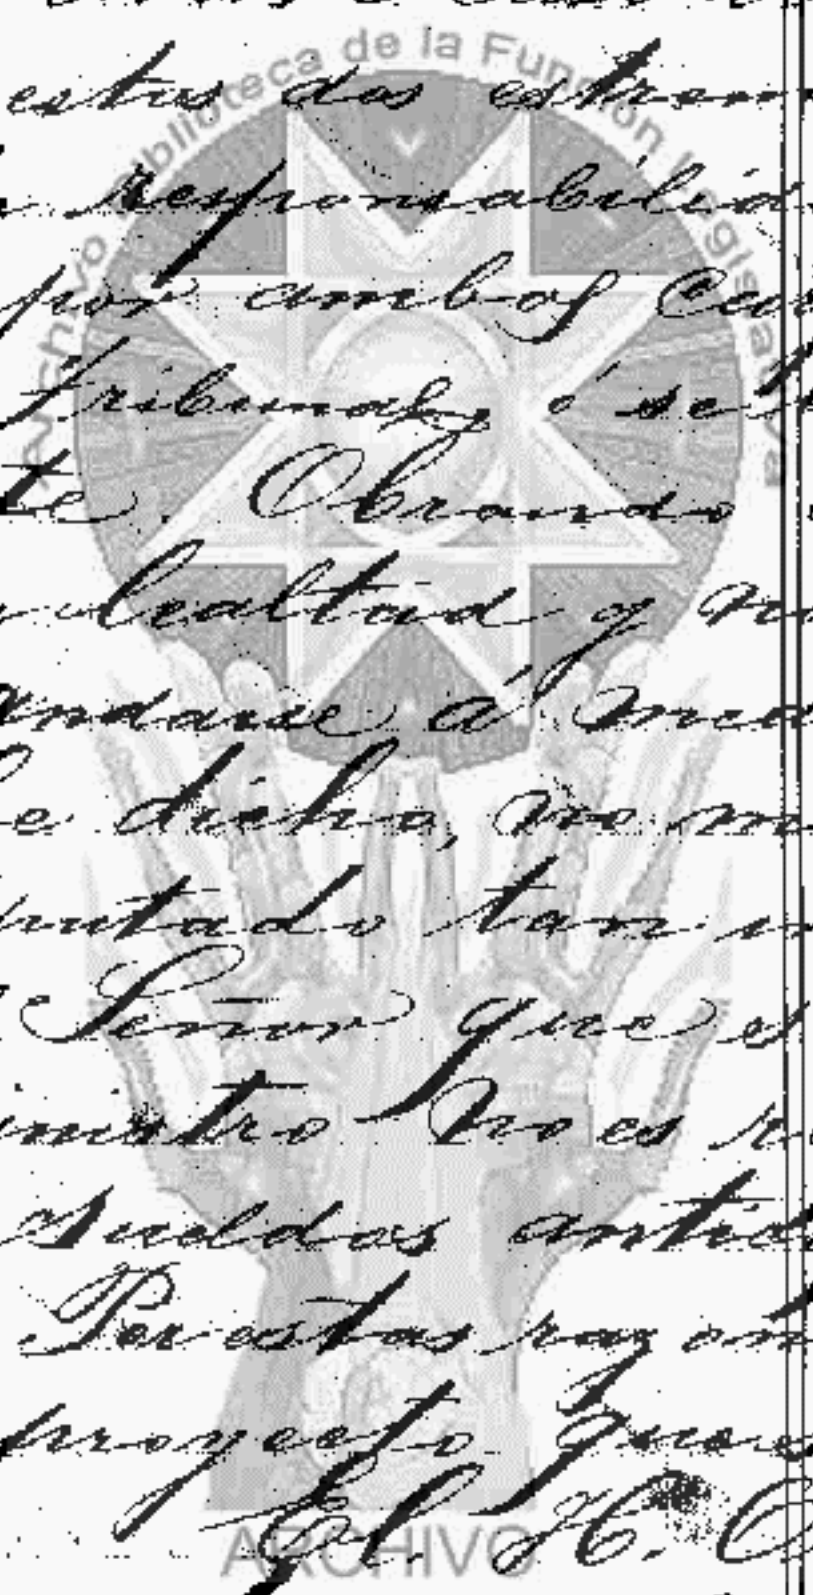 Archivo Biblioteca de la Función Legislativa
estas dos estrem
responsabilida
por ambos Cu
tribunales, ó se
te. Obrando
lealtad y no
andarse á' me
e dicho, no m
putado tan
Señor que es
ministro. No es
sueldos antic
Por estas razon
proyecto que
El H. C
ARCHIVO